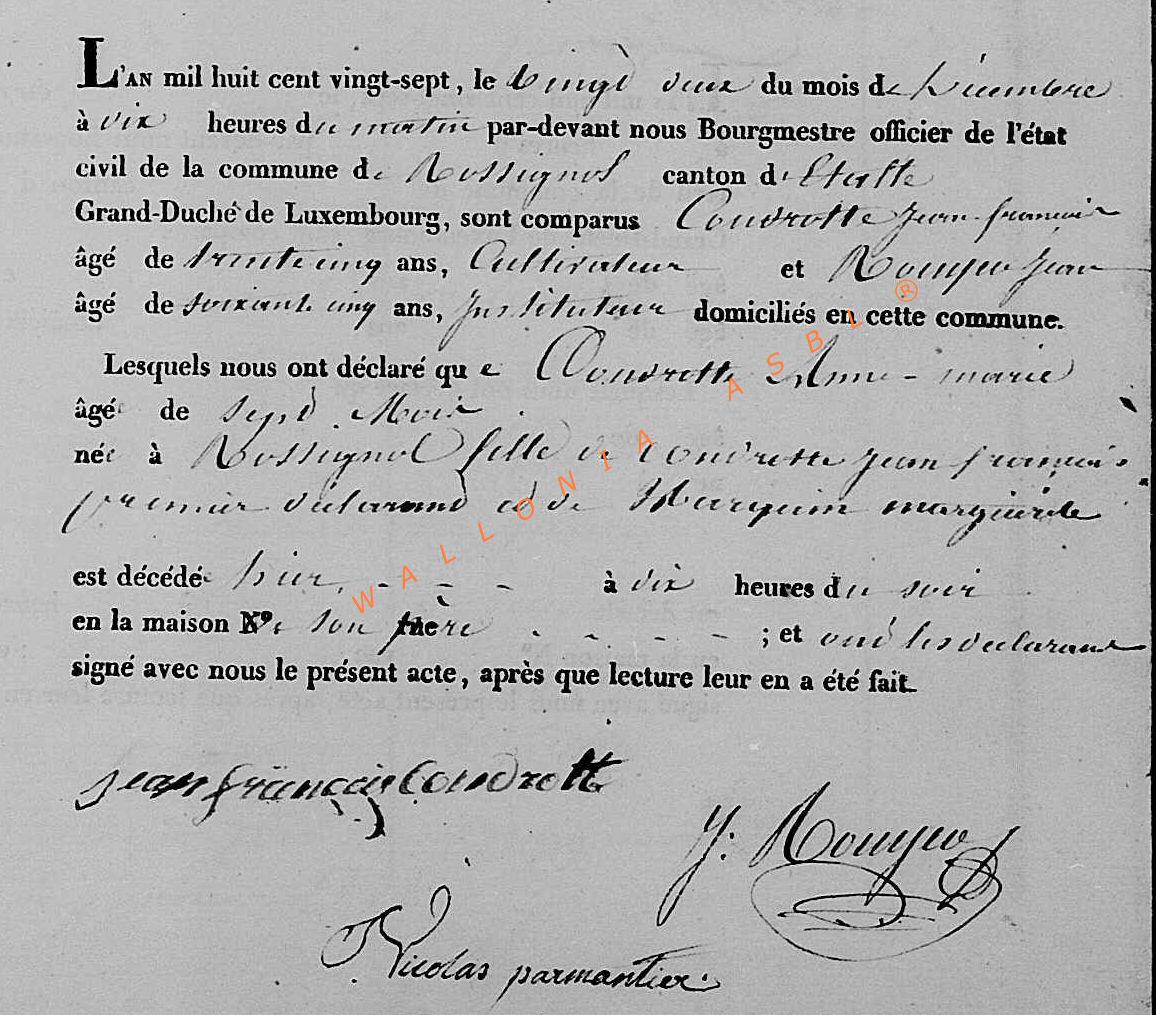 L'AN mil huit cent vingt-sept, le vingt deux du mois de Décembre
à dix heures du matin par-devant nous Bourgmestre officier de l'état
civil de la commune de Rossignol canton d'Etalle
Grand-Duché de Luxembourg, sont comparus Condrotte Jean françois
âgé de trente cinq ans, Cultivateur et Rouyer Jean
âgé de soixante cinq ans, Instituteur domiciliés en cette commune.
Lesquels nous ont déclaré que Condrotte Anne-marie
âgée de sept Mois
née à Rossignol fille de Condrotte Jean françois
premier déclarant et de marguerite
est décédée hier - - - à dix heures du soir
en la maison de son père - - - - - ; et ont les déclarans
signé avec nous le présent acte, après que lecture leur en a été fait
jean françois Condrotte
J. Rouyer
Nicolas parmantier
WALLONIA ASBL ®